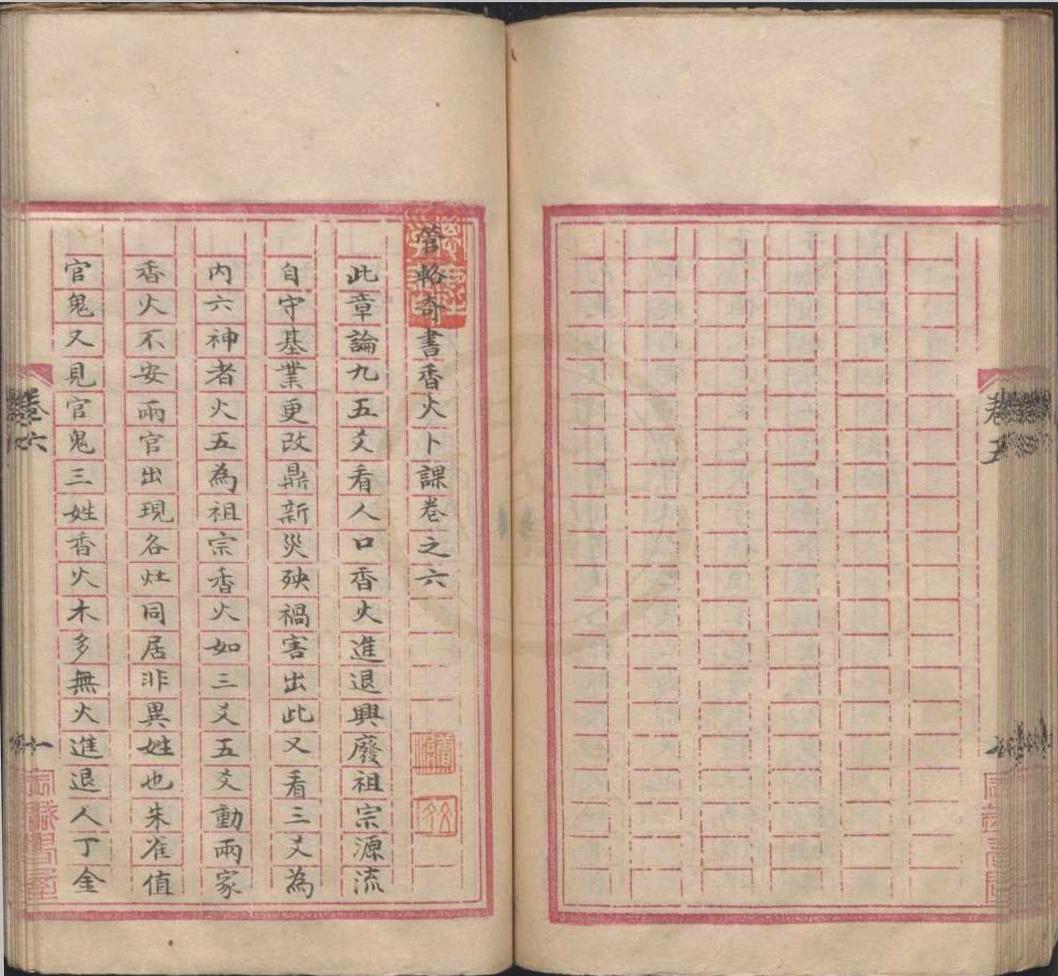 卷五
管輅奇書香火卜課卷之六
此章論九五爻看人口香火進退興廢祖宗源流
自守基業更改鼎新災殃禍害出此又看三爻為
內六神者火五為祖宗香火如三爻五爻動兩家
香火不安兩官出現各灶同居非異姓也朱雀值
官鬼又見官鬼三姓香火木多無火進退人丁金
卷六